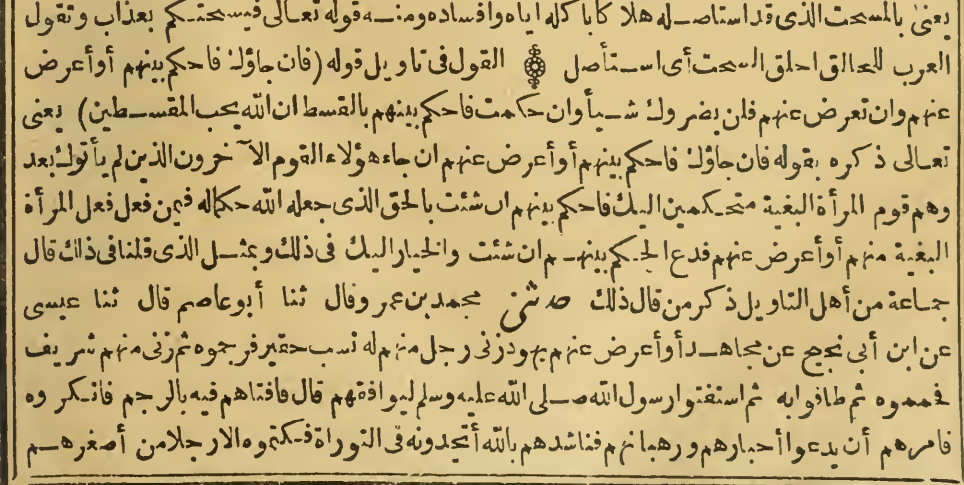 يعنى بالمسحت الذى قد استاصله هلا كاباكله اياه وافساده ومنه قوله تعالى فيسحتكم بعذاب وتقول
العرب للحالق احلق السحت أى استأصل القول فى تاويل قوله (فان جاؤك فاحكم بينهم أو أعرض
عنهم وان تعرض عنهم فلن يضروك شيأ وان حكمت فاحكم بينهم بالقسط ان الله يحب المقسطين) يعنى
تعالى ذكره بقوله فان جاؤك فاحكم بينهم أو أعرض عنهم ان جاء هؤلاء القوم الآخرون الذين لم يأتوك بعد
وهم قوم المرأة البغية متحكمين اليك فاحكم بينهم ان شئت بالحق الذى جعله الله حكما له فيمن فعل فعل المرأة
البغية منهم أو أعرض عنهم فدع الحكم بينهم ان شئت والخيار اليك فى ذلك وبمثل الذى قلنا فى ذلك قال
جماعة من أهل التاويل ذكر من قال ذلك حدثنى محمد بن عمر وقال ثنا أبو عاصم قال ثنا عيسى
عن ابن أبى نجيح عن مجاهد أو أعرض عنهم يهود زنى رجل منهم له نسب حقير فرجموه ثم زنى منهم شريف
فحمموه ثم طافوا به ثم استفتوا رسول الله صلى الله عليه وسلم ليوافقهم قال فافتاهم فيه بالرجم فانكروه
فامرهم أن يدعوا أحبارهم ورهبانهم فناشدهم بالله أتجدونه فى التوراة فكتموه الا رجلا من أصغرهم